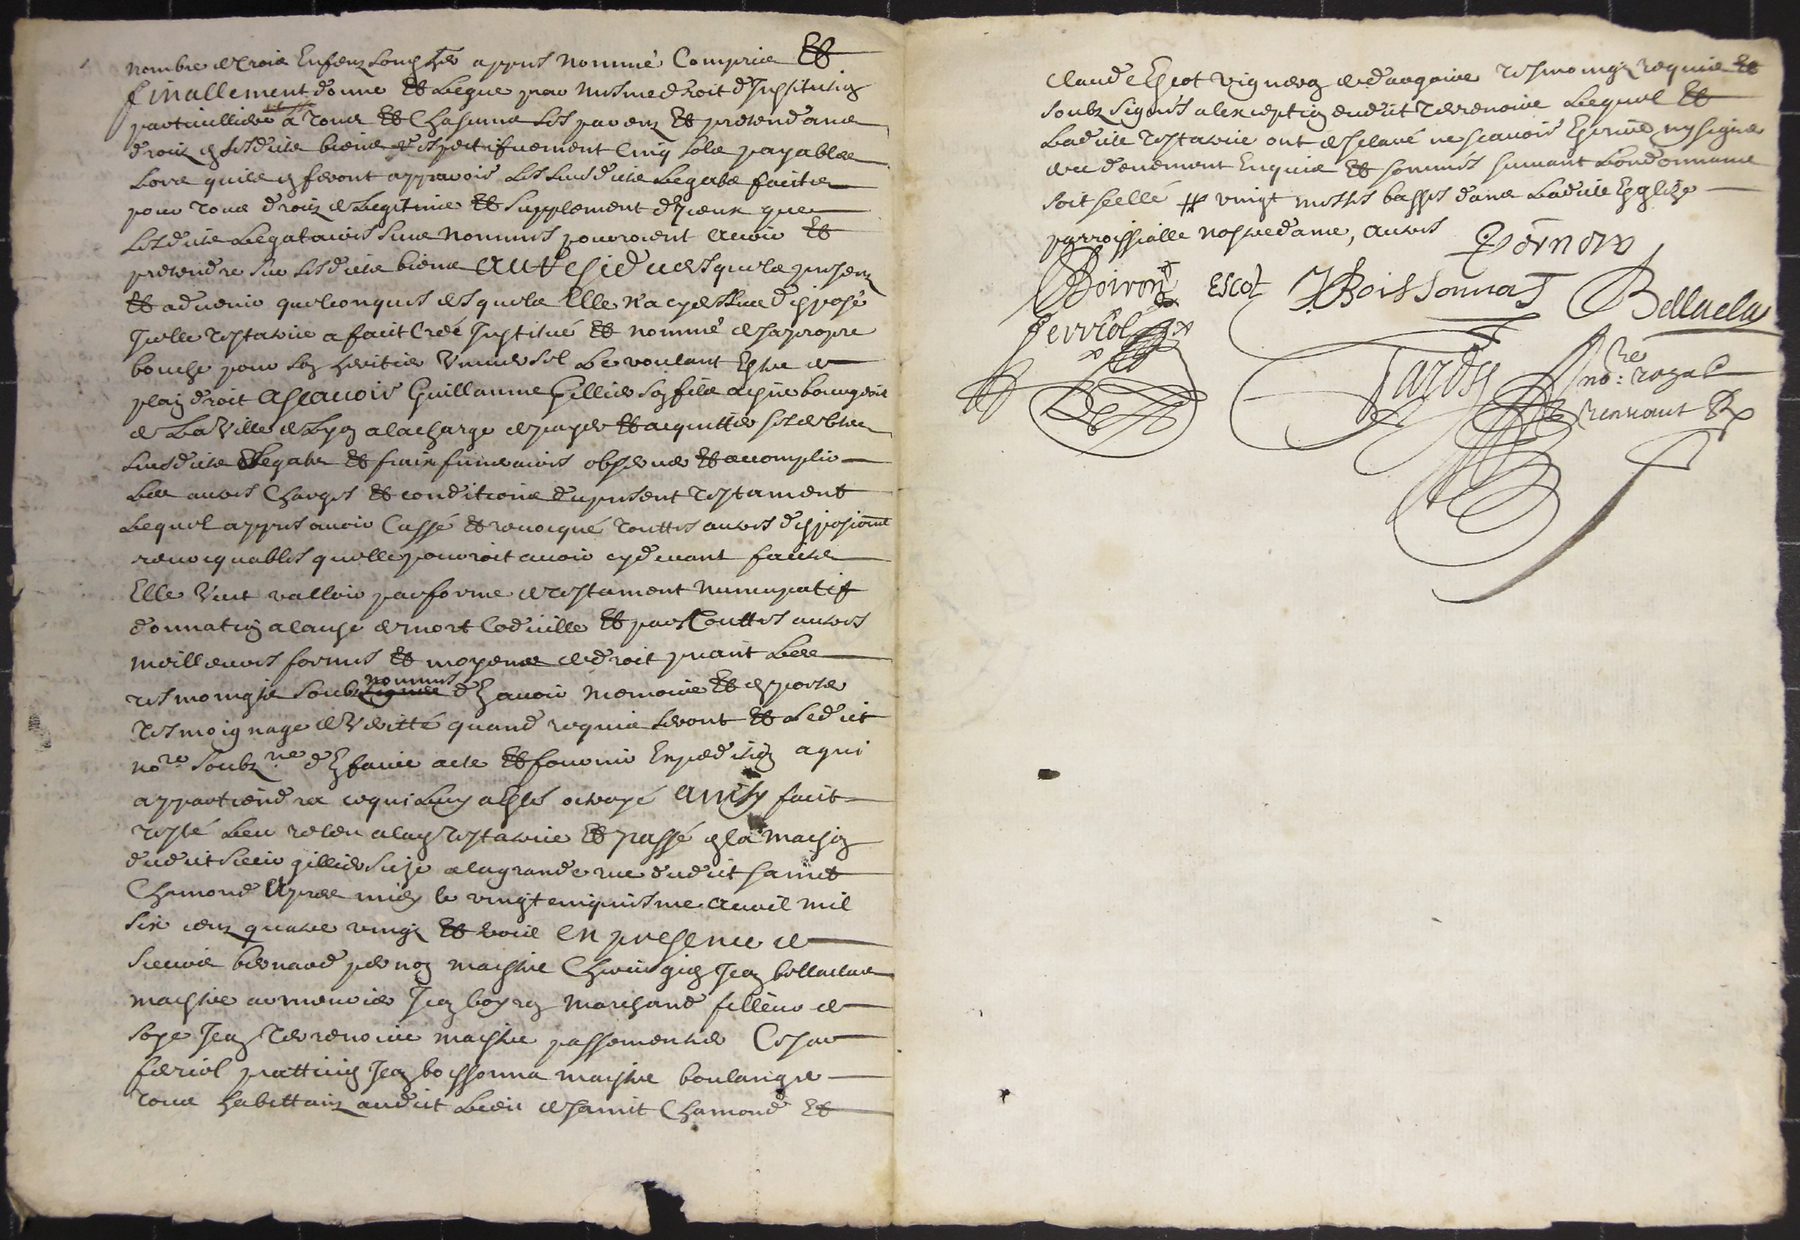 nombre de trois Enfens Sond he appres nommé Comprise Et
finallement donne Et Legue par mesme droit d'Institution
particulliere a tous Et Chascune Ses parens Et pretendans
droit en Sesdits biens respectifvement Cinq Sols payables
Lors quils en feront apparoir Lesquels dits Legats faits
pour tous droits de Legitime Et Supplement d'yceux que
Lesdits Legataires Sus nommes pourroient avoir Et
pretendre Sur Sesdits biens Au Residu desquels presens
Et advenir quelconques desquels Elle n'a cy dessus disposé
Jcelle testatrice a fait Creé Institué Et nommé de sa propre
bouche pour Son heritier Universel Le voulant Estre de
plain droit Ascavoir Guillaume Gillier Son fils Aisne bourgeois
de La Ville de Lyon a la charge de payer Et acquitter Ses debtes
Susdits Legats Et fraix funeraires observer Et accomplir
Les autres Charges Et conditions du present testament
Lequel appres avoir Cassé Et revocqué touttes autres disposions
revocquables quelle pourroit avoir cy devant faittes
Elle Veut valloir par forme de testament nuncupatif
donnation a cause de mort Codicille Et par touttes autres
meilleures formes Et moyens de droit priant Les
tesmoingts Soubz nommes d'En avoir memoire Et en porter
tesmoignage de Veritté quand requis Seront Et Ledict
nore Soubz ne d'En faire acte Et fournir Expedition a qui
appartiendra ce qui Luy a Esté octroyé Ainsy fait
testé Leu releu a lad testatrice Et passé en la maison
dudict Sieur gillier Sise a la grande rue dudict Sainct
Chamond Apres midy le vingt cinquiesme Avril mil
Six cens quatre vingt Et trois En presence de
Sieurs bernard pernon maistre Chirurgien Jean bellaclas
maistre armurier Jean boyron Marchand filleur de
Soye Jean terrenoire maistre passementier Cesar
ferriol pratticien Jean boissonna maistre boulangier
tous habittans audict Lieu de Sainct Chamond Et
Claude Escot vigneron de dargoire tesmoings requis Et
Soubz Signés a l'exception dudit terrenoire Lequel Et
Ladite testatrice ont desclaré ne scavoir Escrire ny signer
de ce deuement Enquis Et sommés suivant L'ordonnance
Soit scellé vingt messes basses dans Ladite Esglize
parroissialle nostre dame, autres Pernon
Boiron Escot JBoissonnas Bellaclas
ferriol
Tardy nore royal
recevant